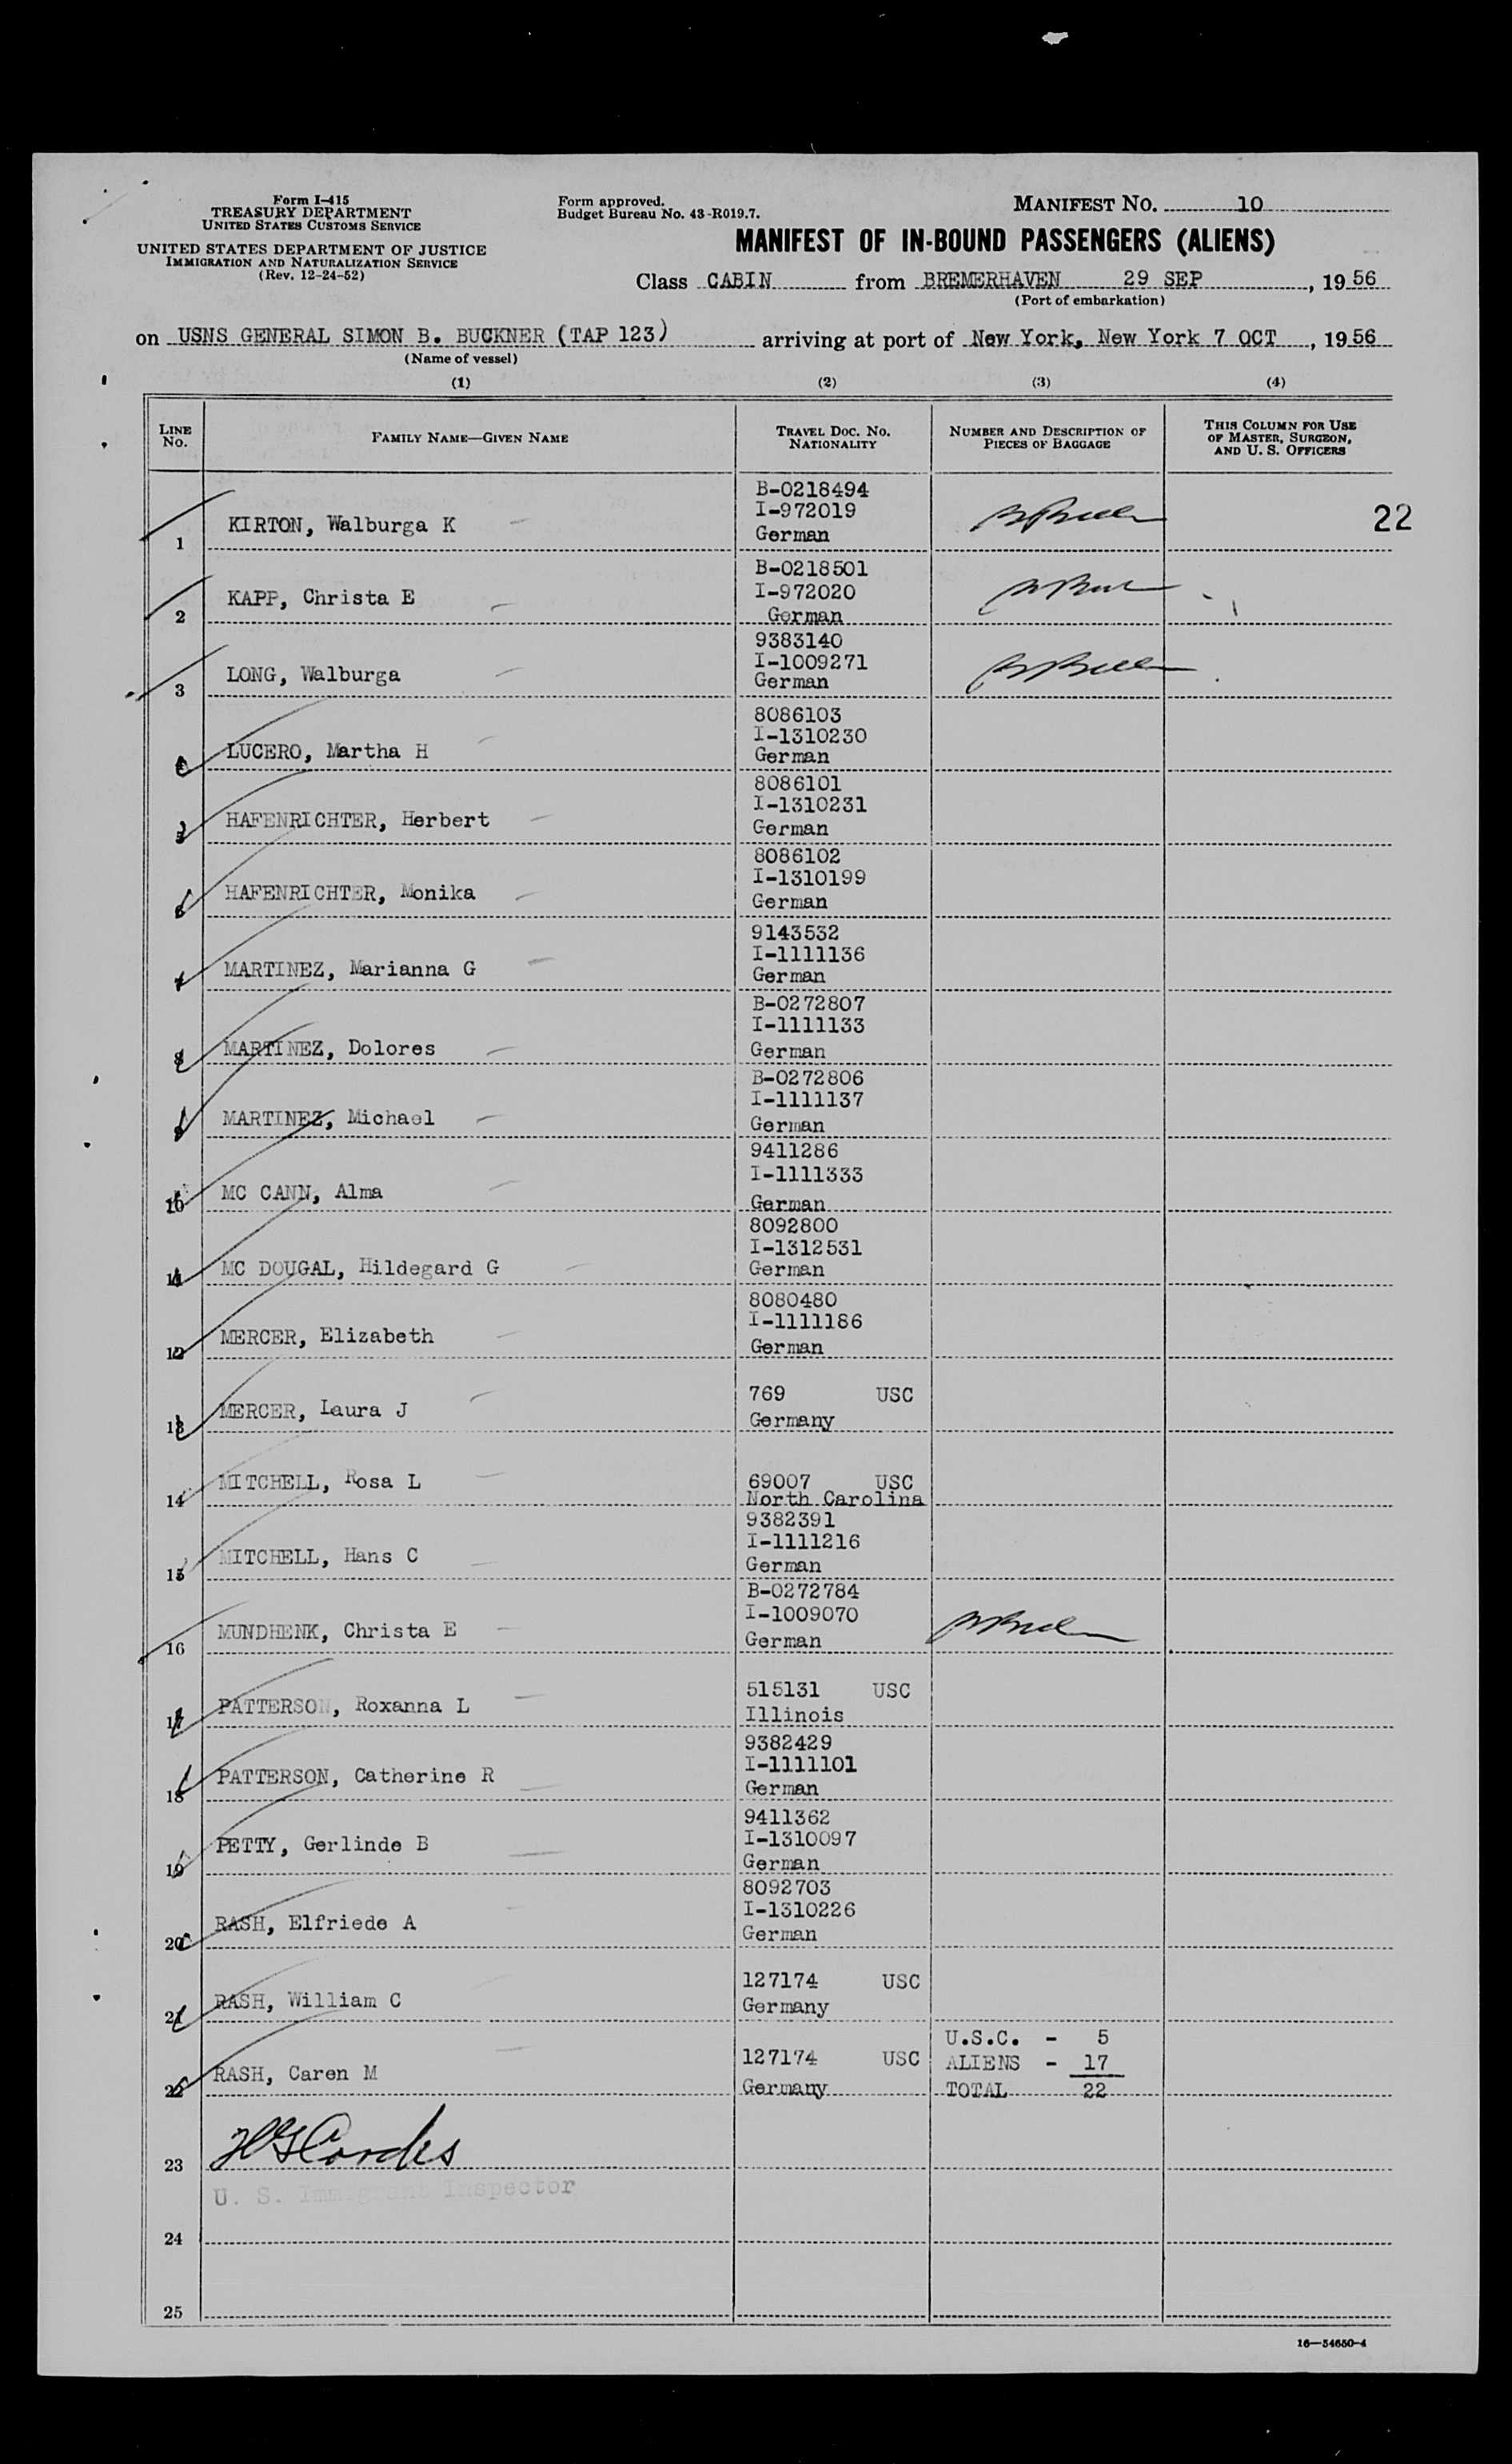 Form I-415
TREASURY DEPARTMENT
UNITED STATES CUSTOMS SERVICE
UNITED STATES DEPARTMENT OF JUSTICE
IMMIGRATION AND NATURALIZATION SERVICE
(Rev. 12-24-52)
Form approved.
Budget Bureau No. 43-R019.7.
MANIFEST NO. 10
MANIFEST OF IN-BOUND PASSENGERS (ALIENS)
Class CABIN from BREMERHAVEN 29 SEP, 1956
(Port of embarkation)
on USNS GENERAL SIMON B. BUCKNER (TAP 123) arriving at port of New York, New York 7 OCT, 1956
(Name of vessel)
(1) (2) (3) (4)
LINE No. FAMILY NAME—GIVEN NAME TRAVEL DOC. NO. NATIONALITY NUMBER AND DESCRIPTION OF PIECES OF BAGGAGE THIS COLUMN FOR USE OF MASTER, SURGEON, AND U. S. OFFICERS
B-0218494
I-972019
1 KIRTON, Walburga K German 22
B-0218501
I-972020
2 KAPP, Christa E German
9383140
I-1009271
3 LONG, Walburga German
8086103
I-1310230
LUCERO, Martha H German
8086101
I-1310231
HAFENRICHTER, Herbert German
8086102
I-1310199
6 HAFENRICHTER, Monika German
9143532
I-1111136
7 MARTINEZ, Marianna G German
B-0272807
I-1111133
8 MARTINEZ, Dolores German
B-0272806
I-1111137
9 MARTINEZ, Michael German
9411286
I-1111333
10 MC CANN, Alma German
8092800
I-1312531
11 MC DOUGAL, Hildegard G German
8080480
I-1111186
12 MERCER, Elizabeth German
769 USC
13 MERCER, Laura J Germany
69007 USC
14 MITCHELL, Rosa L North Carolina
9382391
I-1111216
15 MITCHELL, Hans C German
B-0272784
I-1009070
16 MUNDHENK, Christa E German
515131 USC
17 PATTERSON, Roxanna L Illinois
9382429
I-1111101
18 PATTERSON, Catherine R German
9411362
I-1310097
19 PETTY, Gerlinde B German
8092703
I-1310226
20 RASH, Elfriede A German
127174 USC
21 RASH, William C Germany
U.S.C. - 5
127174 USC ALIENS - 17
22 RASH, Caren M Germany TOTAL 22
23 HG Cordes
U. S. Immigrant Inspector
24
25
16—54650-4